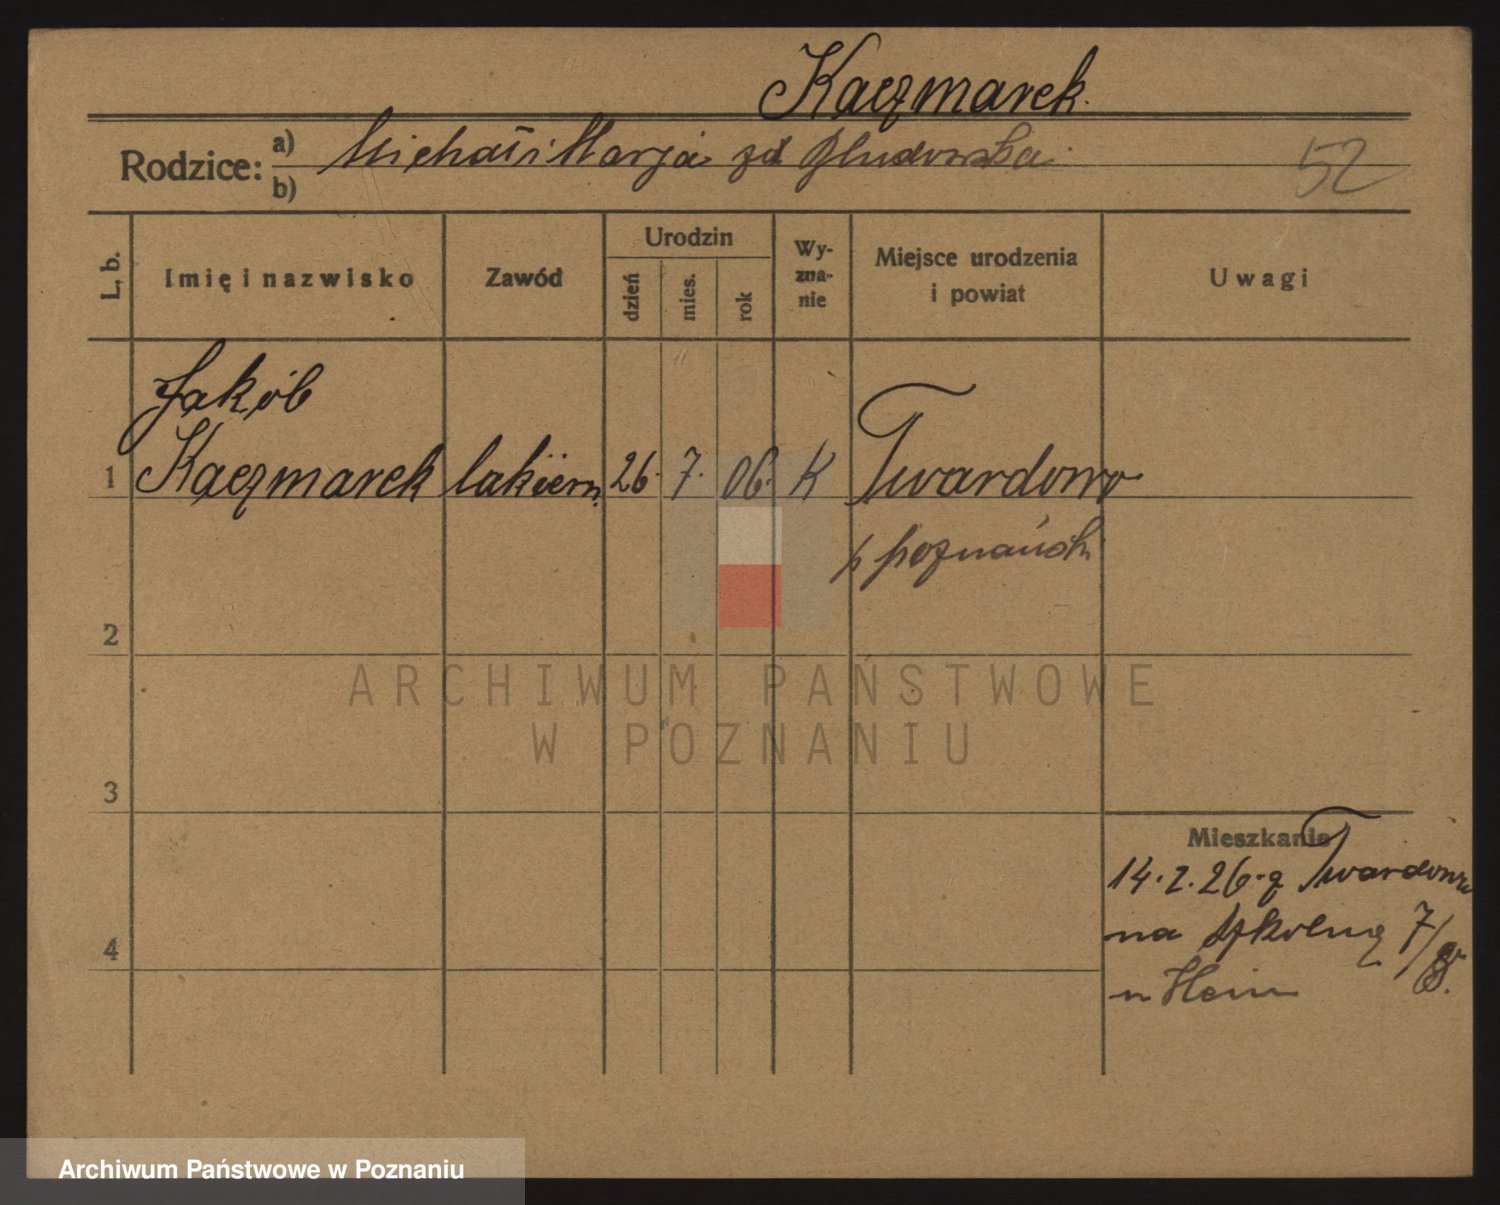 Kaczmarek.
Rodzice: a) Michał i Marja zd
b)
52
L. b.
Imię i nazwisko
Zawód
Urodzin
dzień
mies.
rok
Wy-
zna-
nie
Miejsce urodzenia
i powiat
Uwagi
Jakób
1 Kaczmarek lakiern. 26. 7. 06. K Twardowo
p poznański
2
3
4
Mieszkanie
14. 26. z Twardowa
na Szkolną 7/8.
u Hein
ARCHIWUM PAŃSTWOWE
W POZNANIU
Archiwum Państwowe w Poznaniu